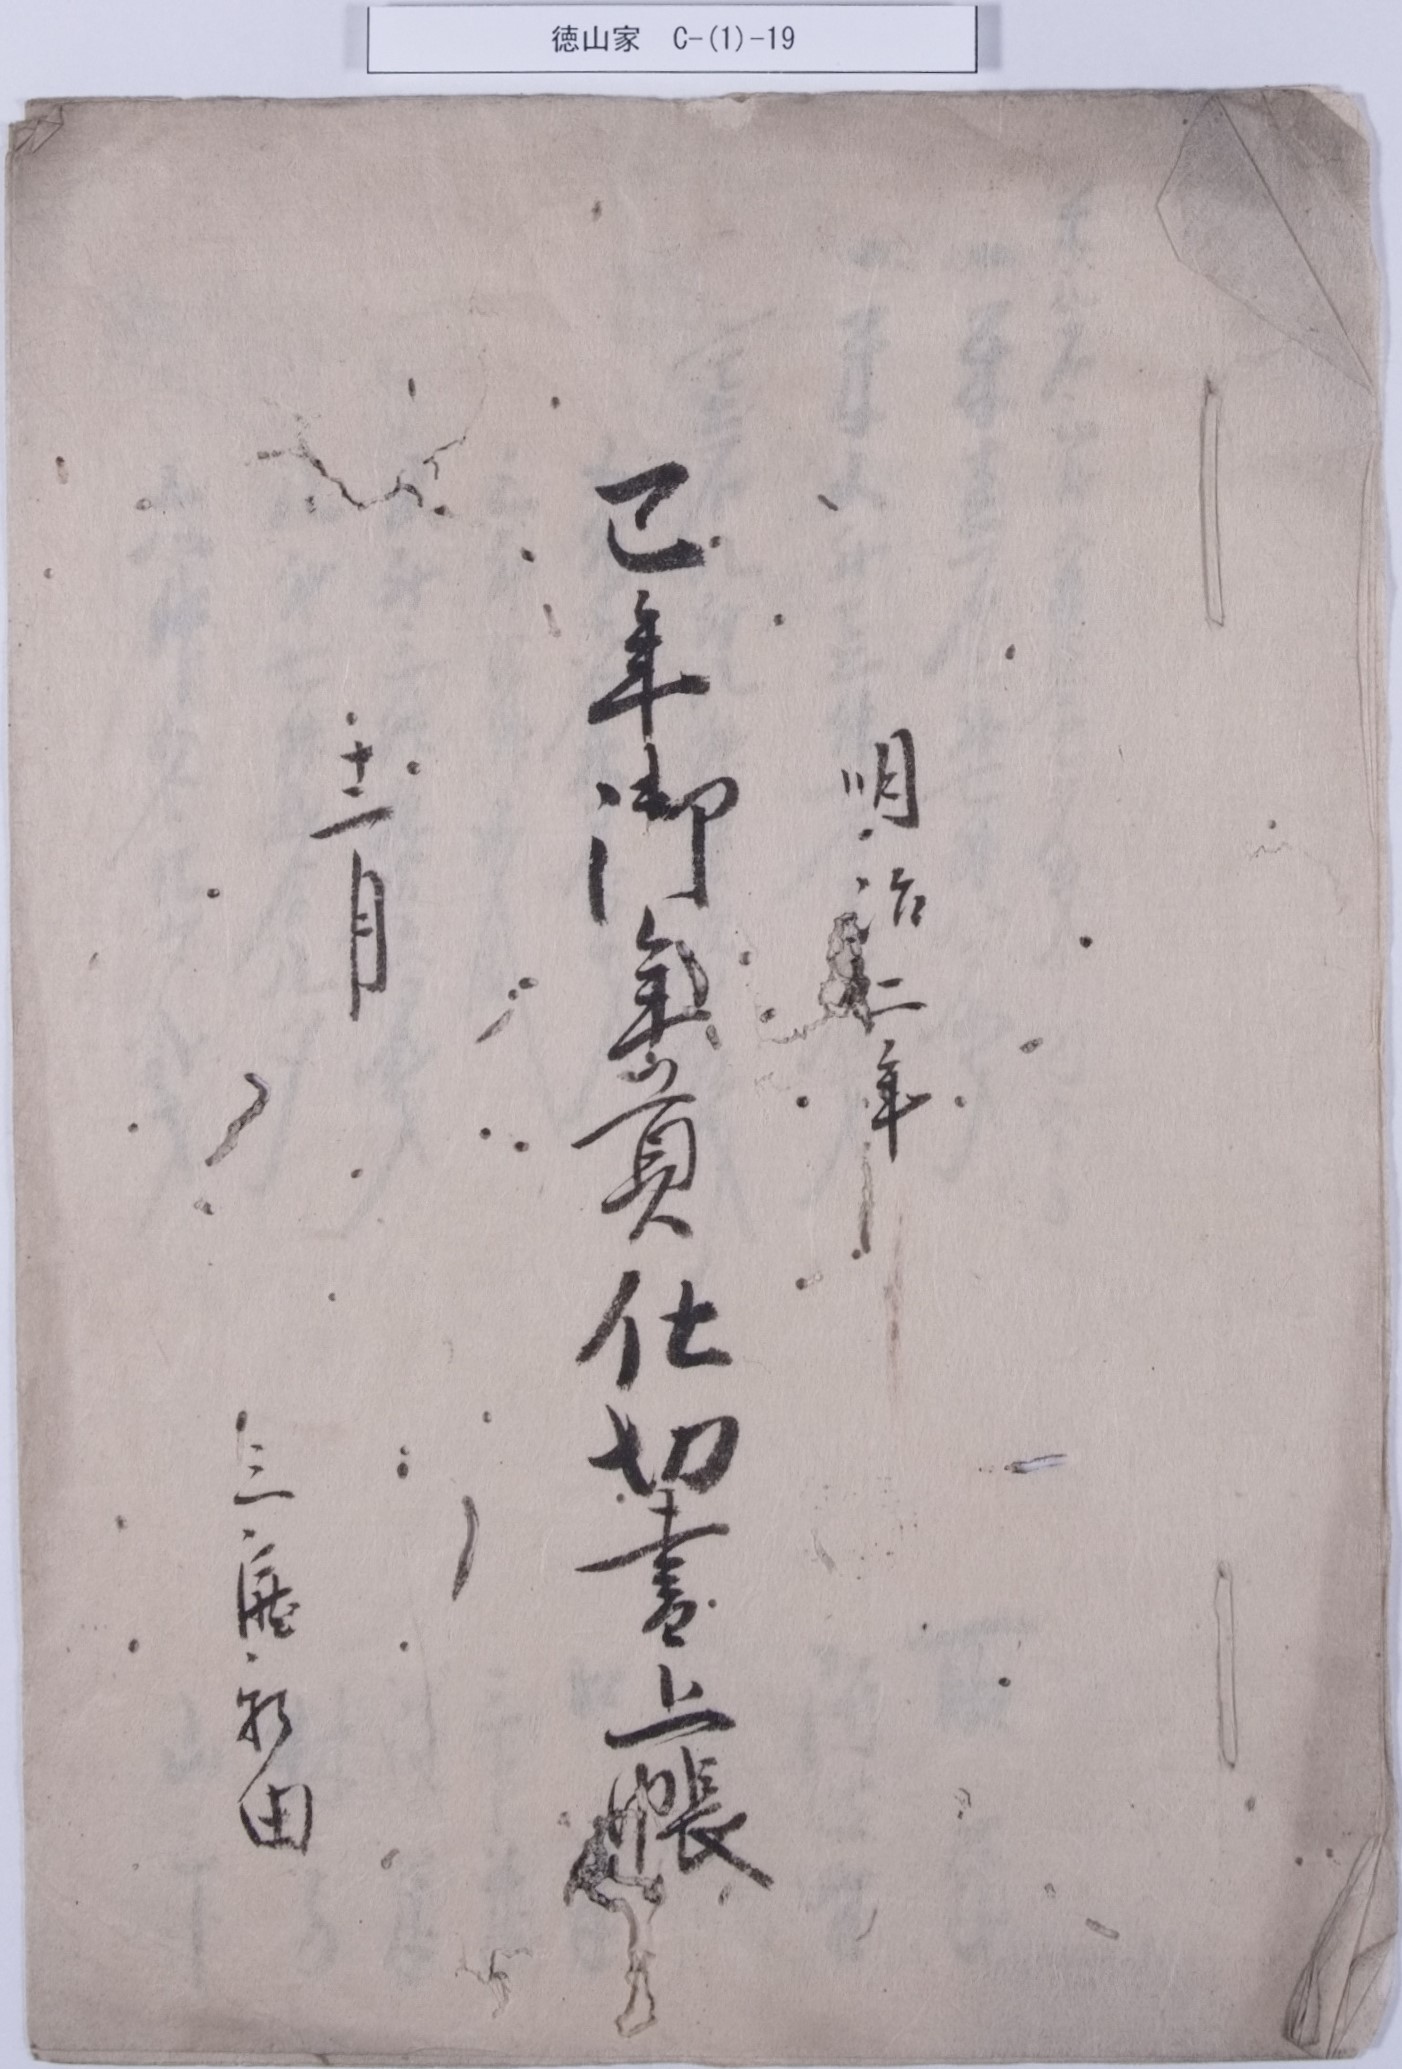 徳山家 C-(1)-19
明治二年
巳年御年貢仕切書上帳
十二月
三新田